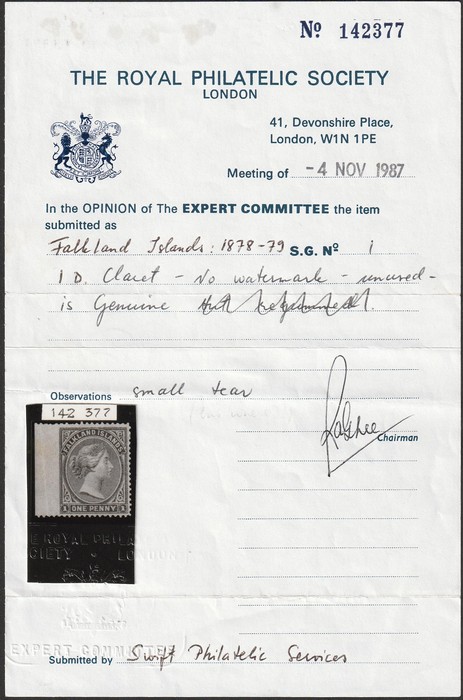 Nº 142377
THE ROYAL PHILATELIC SOCIETY
LONDON
41, Devonshire Place,
London, W1N 1PE
Meeting of -4 NOV 1987
In the OPINION of The EXPERT COMMITTEE the item
submitted as
Falkland Islands: 1878-79 S.G. Nº 1
1 D. Claret - No watermark - unused -
is Genuine
Observations small tear
142 377
Chairman
FALKLAND ISLANDS
1 ONE PENNY 1
E ROYAL PHILA
CIETY LONDON
EXPERT COMMITTEE
Submitted by Swift Philatelic Services